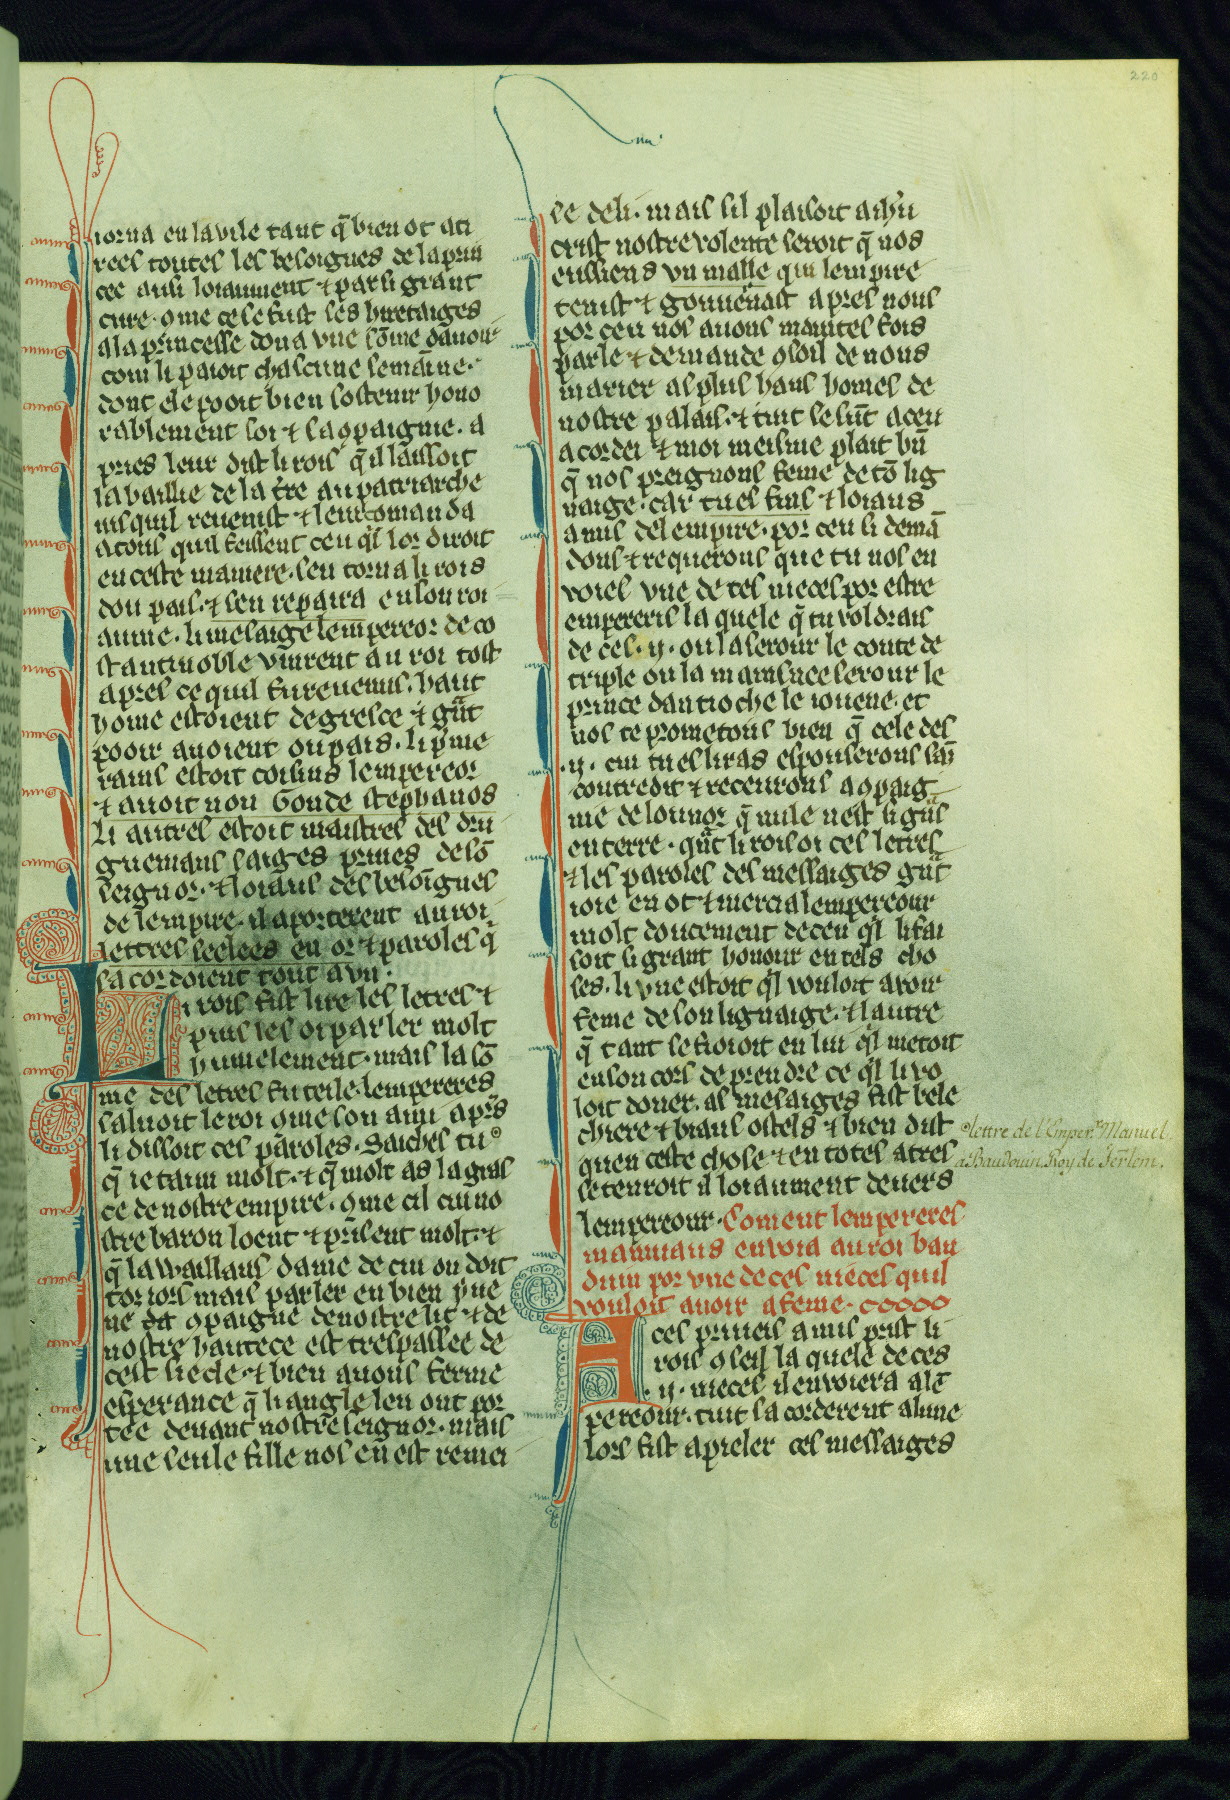 220
iorna en la vile tant q̃ bien ot ati
rees toutes les besoignes de la prin
cee ausi loiaument ⁊ par si grant
cure ⁊ ome ce se fust ses hiretaiges
a la princesse dona vne sõme dauoir
com li paioit chascune semaine·
dont ele pooit bien sostenir hono
rablement soi ⁊ sa ɔpaignie· a
pries leur dist li rois q̃ il laissoit
la baillie de la t̃re au patriarche
iusquil reuenist ⁊ leur comanda
a touz quil feissent ceu q̃l lor diroit
en ceste maniere· sen torna li rois
dou pais· ⁊ sen repaira en son roi
aume· li mesaige lempereor de co
stantinoble vinrent au roi tost
apres ce quil fu reuenus· haut
home estoient de gresce ⁊ gr̃t
pooir auoient ou pais· li p̃me
rains estoit cosins lempereor
⁊ auoit non Gonde stephanos
li autres estoit maistres des dru
guemans saiges
seignor· ⁊ loiaus des besoignes
de lempire· il aporterent au roi
lettres seelees en or ⁊ paroles q̃
sacordoient tout a vn·
Li rois fist lire les letres ⁊
puis les oi parler molt
humelement· mais la sõ
me des letres fu tele· lempereres
saluoit le roi ɔme son ami apr̃s
li dissoit ces paroles· Saiches tu
q̃ ie taim molt· ⁊ q̃ molt as la gras
ce de nostre empire· ɔme cil cui no
stre baron loent ⁊ prisent molt· ⁊
q̃ la waillans dame de cui on doit
toz iors mais parler en bien
ne ɔpaigne de nostre lit ⁊ de
nostre hautece est trespassee de
cest siecle· ⁊ bien auons ferme
esperance q̃ li angle len ont por
tee deuant nostre seignor· mais
vne seule fille nos en est remei
se de li· mais sil plaisoit a ih̃u
crist nostre volente seroit q̃ nos
eussiens vn malle qui lempire
tenist ⁊ gouuenast apres nous
por ceu nos auons maintes fois
parle ⁊ demande ɔsoil de nous
marier as plus haus homes de
nostre palais· ⁊ tuit se sũt a ceu
acordei ⁊ moi meisme plait bñ
q̃ nos preignons feme de tõ lig
naige· car tu es fins ⁊ loiaus
amis del empire· por ceu li demã
dons ⁊ requerons que tu nos en
voies vne de tes nieces por estre
empereris la quele q̃ tu voldrais
de ces· ij· ou la serour le conte de
triple ou la mainsnee serour le
prince dantioche le iouene· et
nos te prometons bien q̃ cele des
·ij· cui tu esliras esponserons sãs
contredit ⁊ receurons a ɔpaig
nie de lounor q̃ nule nest si gr̃s
en terre· q̃t li rois oi ces letres
⁊ les paroles des messaiges gr̃t
ioie en ot ⁊ mercia lempereour
molt doucement de ceu q̃l li fai
soit si grant honour en tels cho
ses· li vne estoit q̃l vouloit avoir
feme de son lignaige· ⁊ lautre
q̃ tant se fioioit en lui q̃l metoit
en son cors de prendre ce q̃l li vo
loit doner· as mesaiges fist bele
chiere ⁊ biaus ostels ⁊ bien dist
quen ceste chose ⁊ en totes atres
se tenroit il loiaument deuers
lempereour· Coment lempereres
manuiaus envoia au roi bau
duin por vne de ces nieces quil
vouloit auoir a feme·
A ces prineis amis prist li
rois ɔseil la quele de ces
·ij· nieces il envoiera a lẽ
pereour· tuit sacorderent a lune
lors fist apieler ces messaiges
lettre de l'Emper.r Manuel
a Baudouin Roy de Jer̃lem.